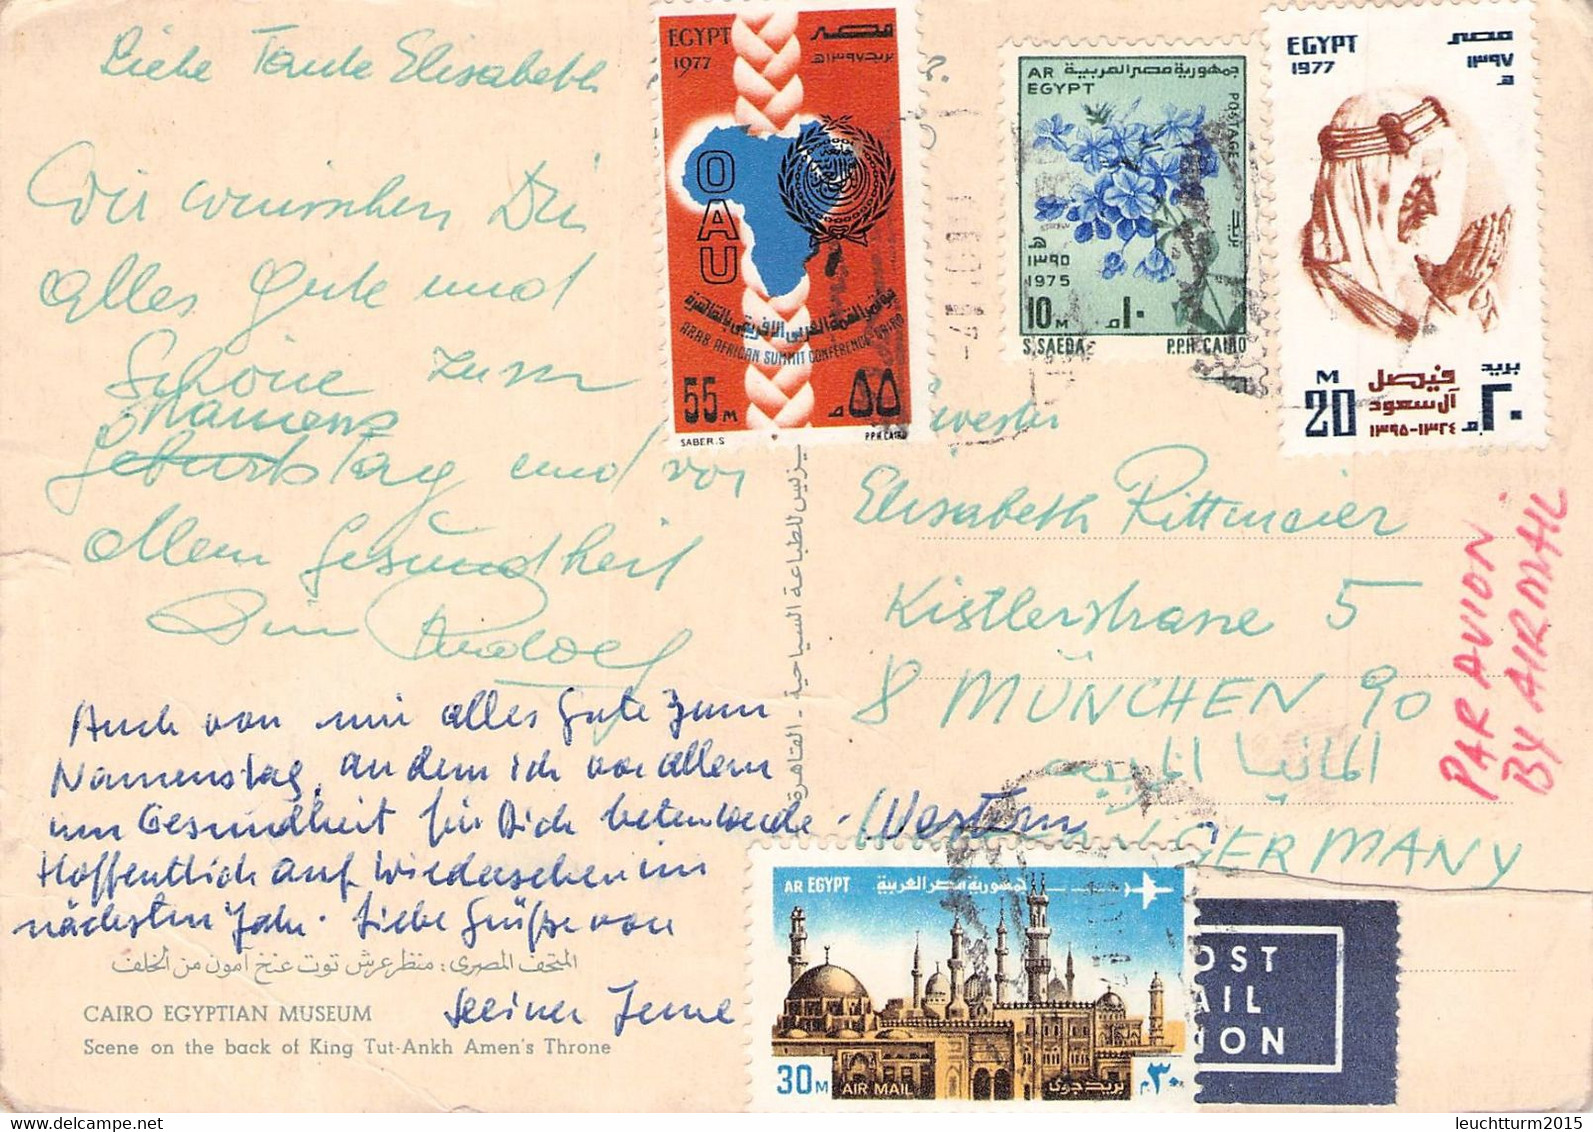 Liebe Tante Elisabeth
Wir wünschen Dir
alles Gute und
Schöne zum
Namens
Geburtstag und vor
allem Gesundheit
Dein Rudolf
Auch von mir alles Gute zum
Namenstag, an dem ich vor allem
um Gesundheit für Dich beten werde.
Hoffentlich auf Wiedersehen im
nächsten Jahr. Liebe Grüße von
Deiner Irene
المتحف المصرى: منظر عرش توت عنخ آمون من الخلف
CAIRO EGYPTIAN MUSEUM
Scene on the back of King Tut-Ankh Amen's Throne
للطباعة السياحية - القاهرة
EGYPT
1977
مصر
بريد ١٣٩٧هـ
OAU
مؤتمر القمة العربى الافريقى بالقاهرة
ARAB AFRICAN SUMMIT CONFERENCE CAIRO
55 M
٥٥ م
SABER.S
P.P.H. CAIRO
AR EGYPT
جمهورية مصر العربية
POSTAGE
بريد
١٣٩٥ هـ
1975
10 M
١٠ م
S. SAEDA
P.P.H. CAIRO
EGYPT
1977
مصر
١٣٩٧
هـ
M
20
فيصل
آل سعود
١٣٢٤-١٣٩٥
بريد
٢٠ م
wester
Elisabeth Rittmeier
Kistlerstrasse 5
8 MÜNCHEN 90
المانيا الغربية
Western
GERMANY
PAR AVION
BY AIRMAIL
AR EGYPT
جمهورية مصر العربية
30 M
AIR MAIL
بريد جوى
٣٠ م
OST
AIL
ION
leuchtturm2015